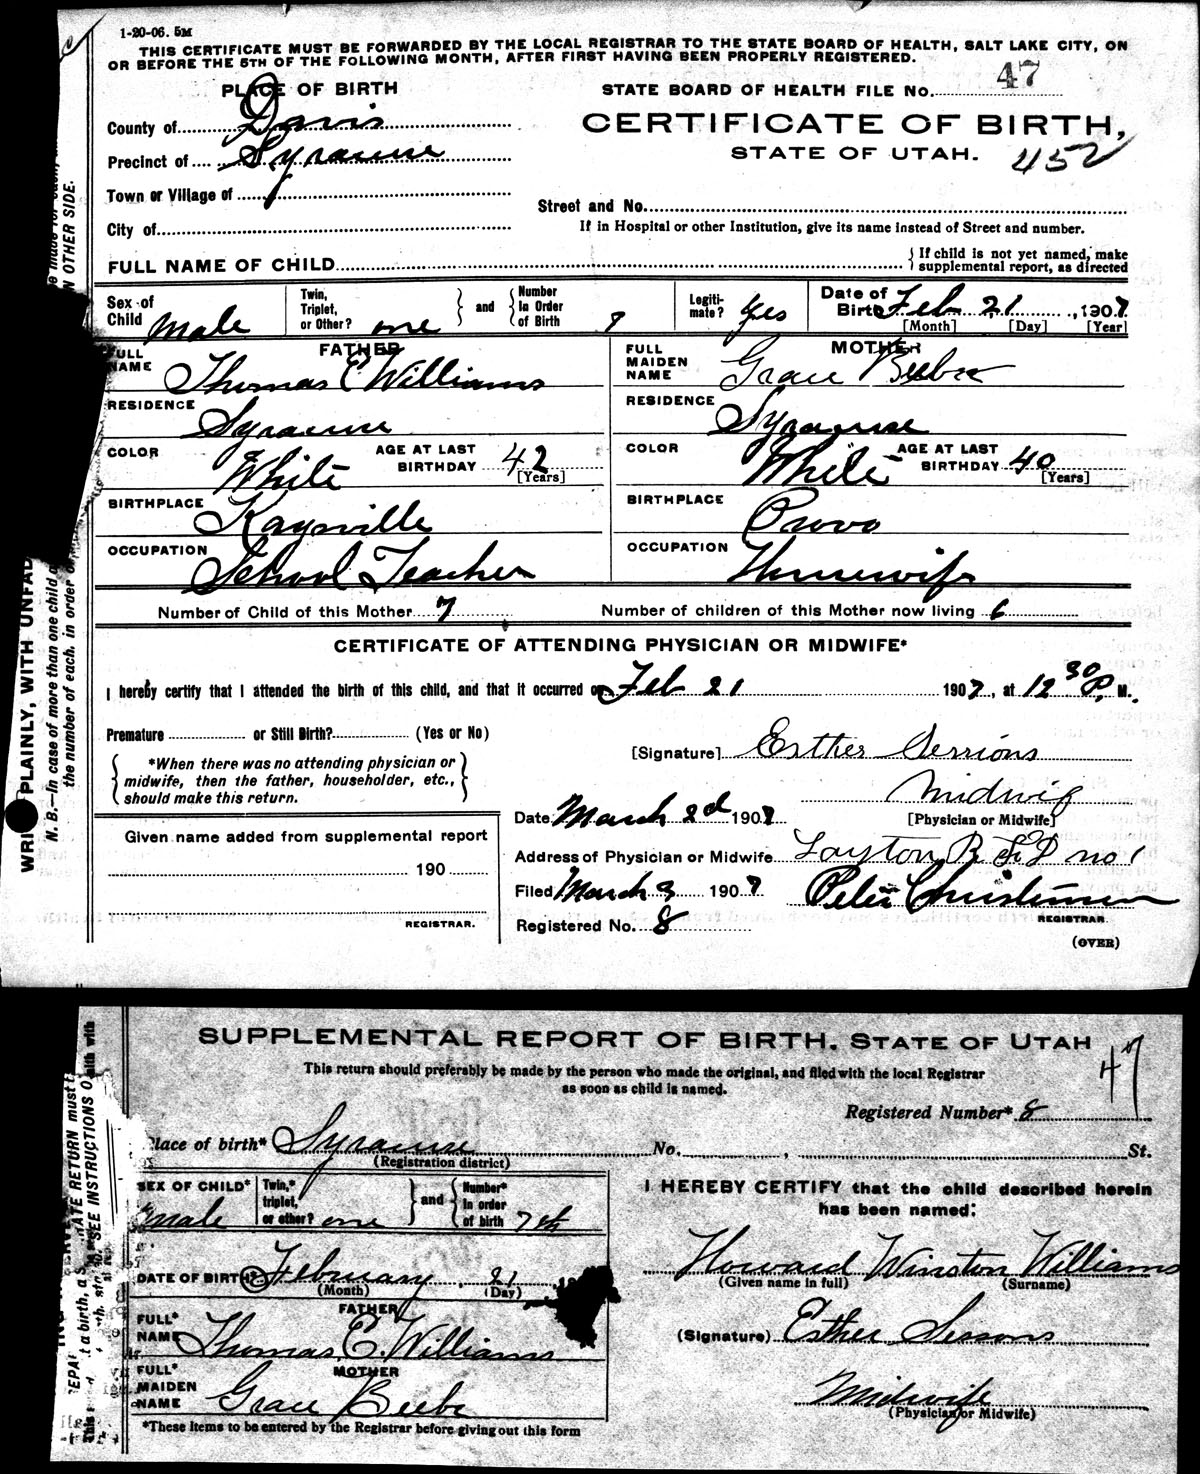 1-20-06. 5M
THIS CERTIFICATE MUST BE FORWARDED BY THE LOCAL REGISTRAR TO THE STATE BOARD OF HEALTH, SALT LAKE CITY, ON
OR BEFORE THE 5TH OF THE FOLLOWING MONTH, AFTER FIRST HAVING BEEN PROPERLY REGISTERED.
PLACE OF BIRTH
STATE BOARD OF HEALTH FILE No. 47
County of Davis
CERTIFICATE OF BIRTH,
Precinct of Syracuse
STATE OF UTAH. 452
Town or Village of
Street and No.
City of
If in Hospital or other Institution, give its name instead of Street and number.
FULL NAME OF CHILD
{ If child is not yet named, make
supplemental report, as directed
Sex of Child Male
Twin, Triplet, or Other? one
and
Number In Order of Birth 7
Legiti-mate? Yes
Date of Birth Feb 21, 1907
[Month] [Day] [Year]
FATHER
FULL NAME Thomas E Williams
RESIDENCE Syracuse
COLOR White
AGE AT LAST BIRTHDAY 42
[Years]
BIRTHPLACE Kaysville
OCCUPATION School Teacher
MOTHER
FULL MAIDEN NAME Grace Beebe
RESIDENCE Syracuse
COLOR White
AGE AT LAST BIRTHDAY 40
[Years]
BIRTHPLACE Provo
OCCUPATION Housewife
Number of Child of this Mother 7
Number of children of this Mother now living 6
CERTIFICATE OF ATTENDING PHYSICIAN OR MIDWIFE*
I hereby certify that I attended the birth of this child, and that it occurred on Feb 21 1907, at 12 30 P. M.
Premature or Still Birth? (Yes or No)
[Signature] Esther Sessions
*When there was no attending physician or
midwife, then the father, householder, etc.,
should make this return.
Midwif
[Physician or Midwife]
Date March 2d 1907
Given name added from supplemental report
Address of Physician or Midwife Layton R F D no 1
190
Filed March 3 1907
Peter Christensen
REGISTRAR.
REGISTRAR
Registered No. 8
(OVER)
PLAINLY, WITH UNFAD
N. B.—In case of more than one child
the number of each, in order
N OTHER SIDE.
SUPPLEMENTAL REPORT OF BIRTH. STATE OF UTAH
47
This return should preferably be made by the person who made the original, and filed with the local Registrar
as soon as child is named.
Registered Number* 8
Place of birth* Syracuse No. , St.
(Registration district)
SEX OF CHILD* Male
Twin,* triplet, or other? one
and
Number* in order of birth 7th
DATE OF BIRTH* February 21
(Month) (Day)
FATHER
FULL* NAME Thomas E. Williams
MOTHER
FULL* MAIDEN NAME Grace Beebe
*These items to be entered by the Registrar before giving out this form
I HEREBY CERTIFY that the child described herein
has been named:
Howard Winston Williams
(Given name in full) (Surname)
(Signature) Esther Sessons
Midwife
(Physician or Midwife)
RATE RETURN must
SEE INSTRUCTIONS